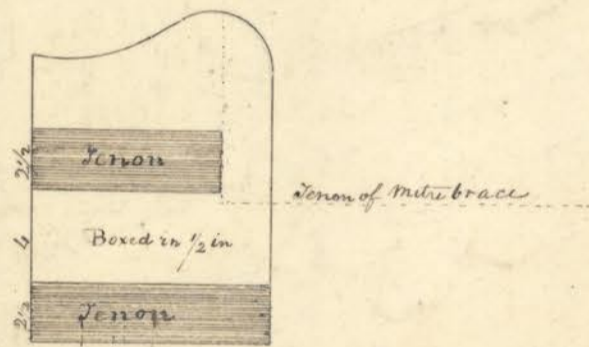 2 1/2
Tenon
Tenon of Mitre brace
4
Boxed in 1/2 in
2 1/2
Tenon